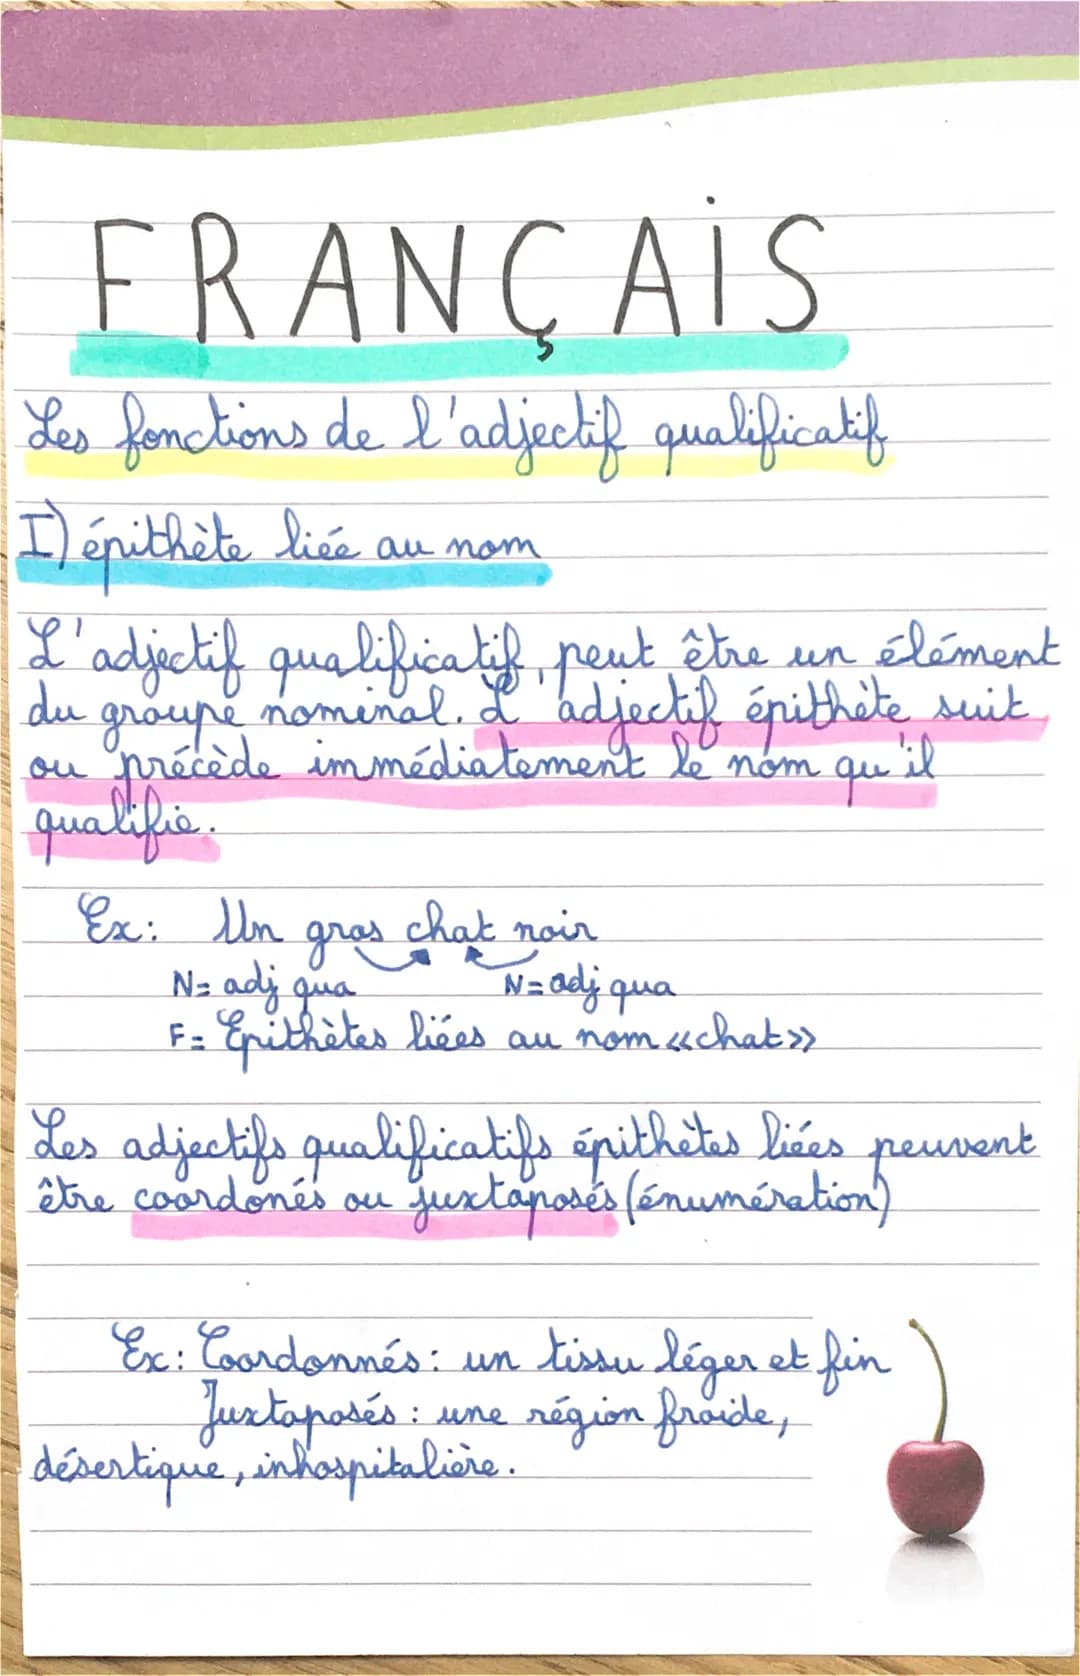 FRANÇAİS
Les fonctions de l'adjectif qualificatif
I) épithète liée au nom
L'adjectif qualificatif, peut être un élément
du groupe nominal. L'adjectif épithète suit
ou précède immédiatement le nom qu'il
qualifie.
Ex: Un gras chat noir
N= adj qua N=adj qua
F= Epithètes liées au nom «chat»
Les adjectifs qualificatifs épithètes liées peuvent
être coordonés ou juxtaposés (énumération)
Ex: Coordonnés: un tissu léger et fin
Juxtaposés : une région froide,
désertique, inhospitalière.